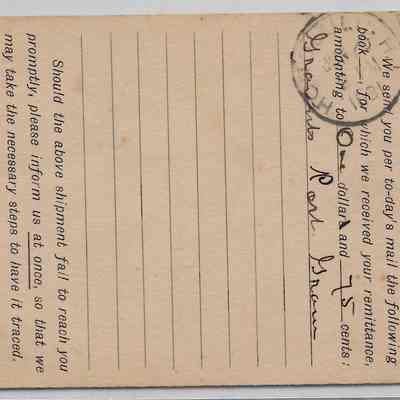 We send you per to-day's mail the following
book—, for which we received your remittance,
amounting to One dollars and 75 cents:
Port Gram
Should the above shipment fail to reach you
promptly, please inform us at once, so that we
may take the necessary steps to have it traced.